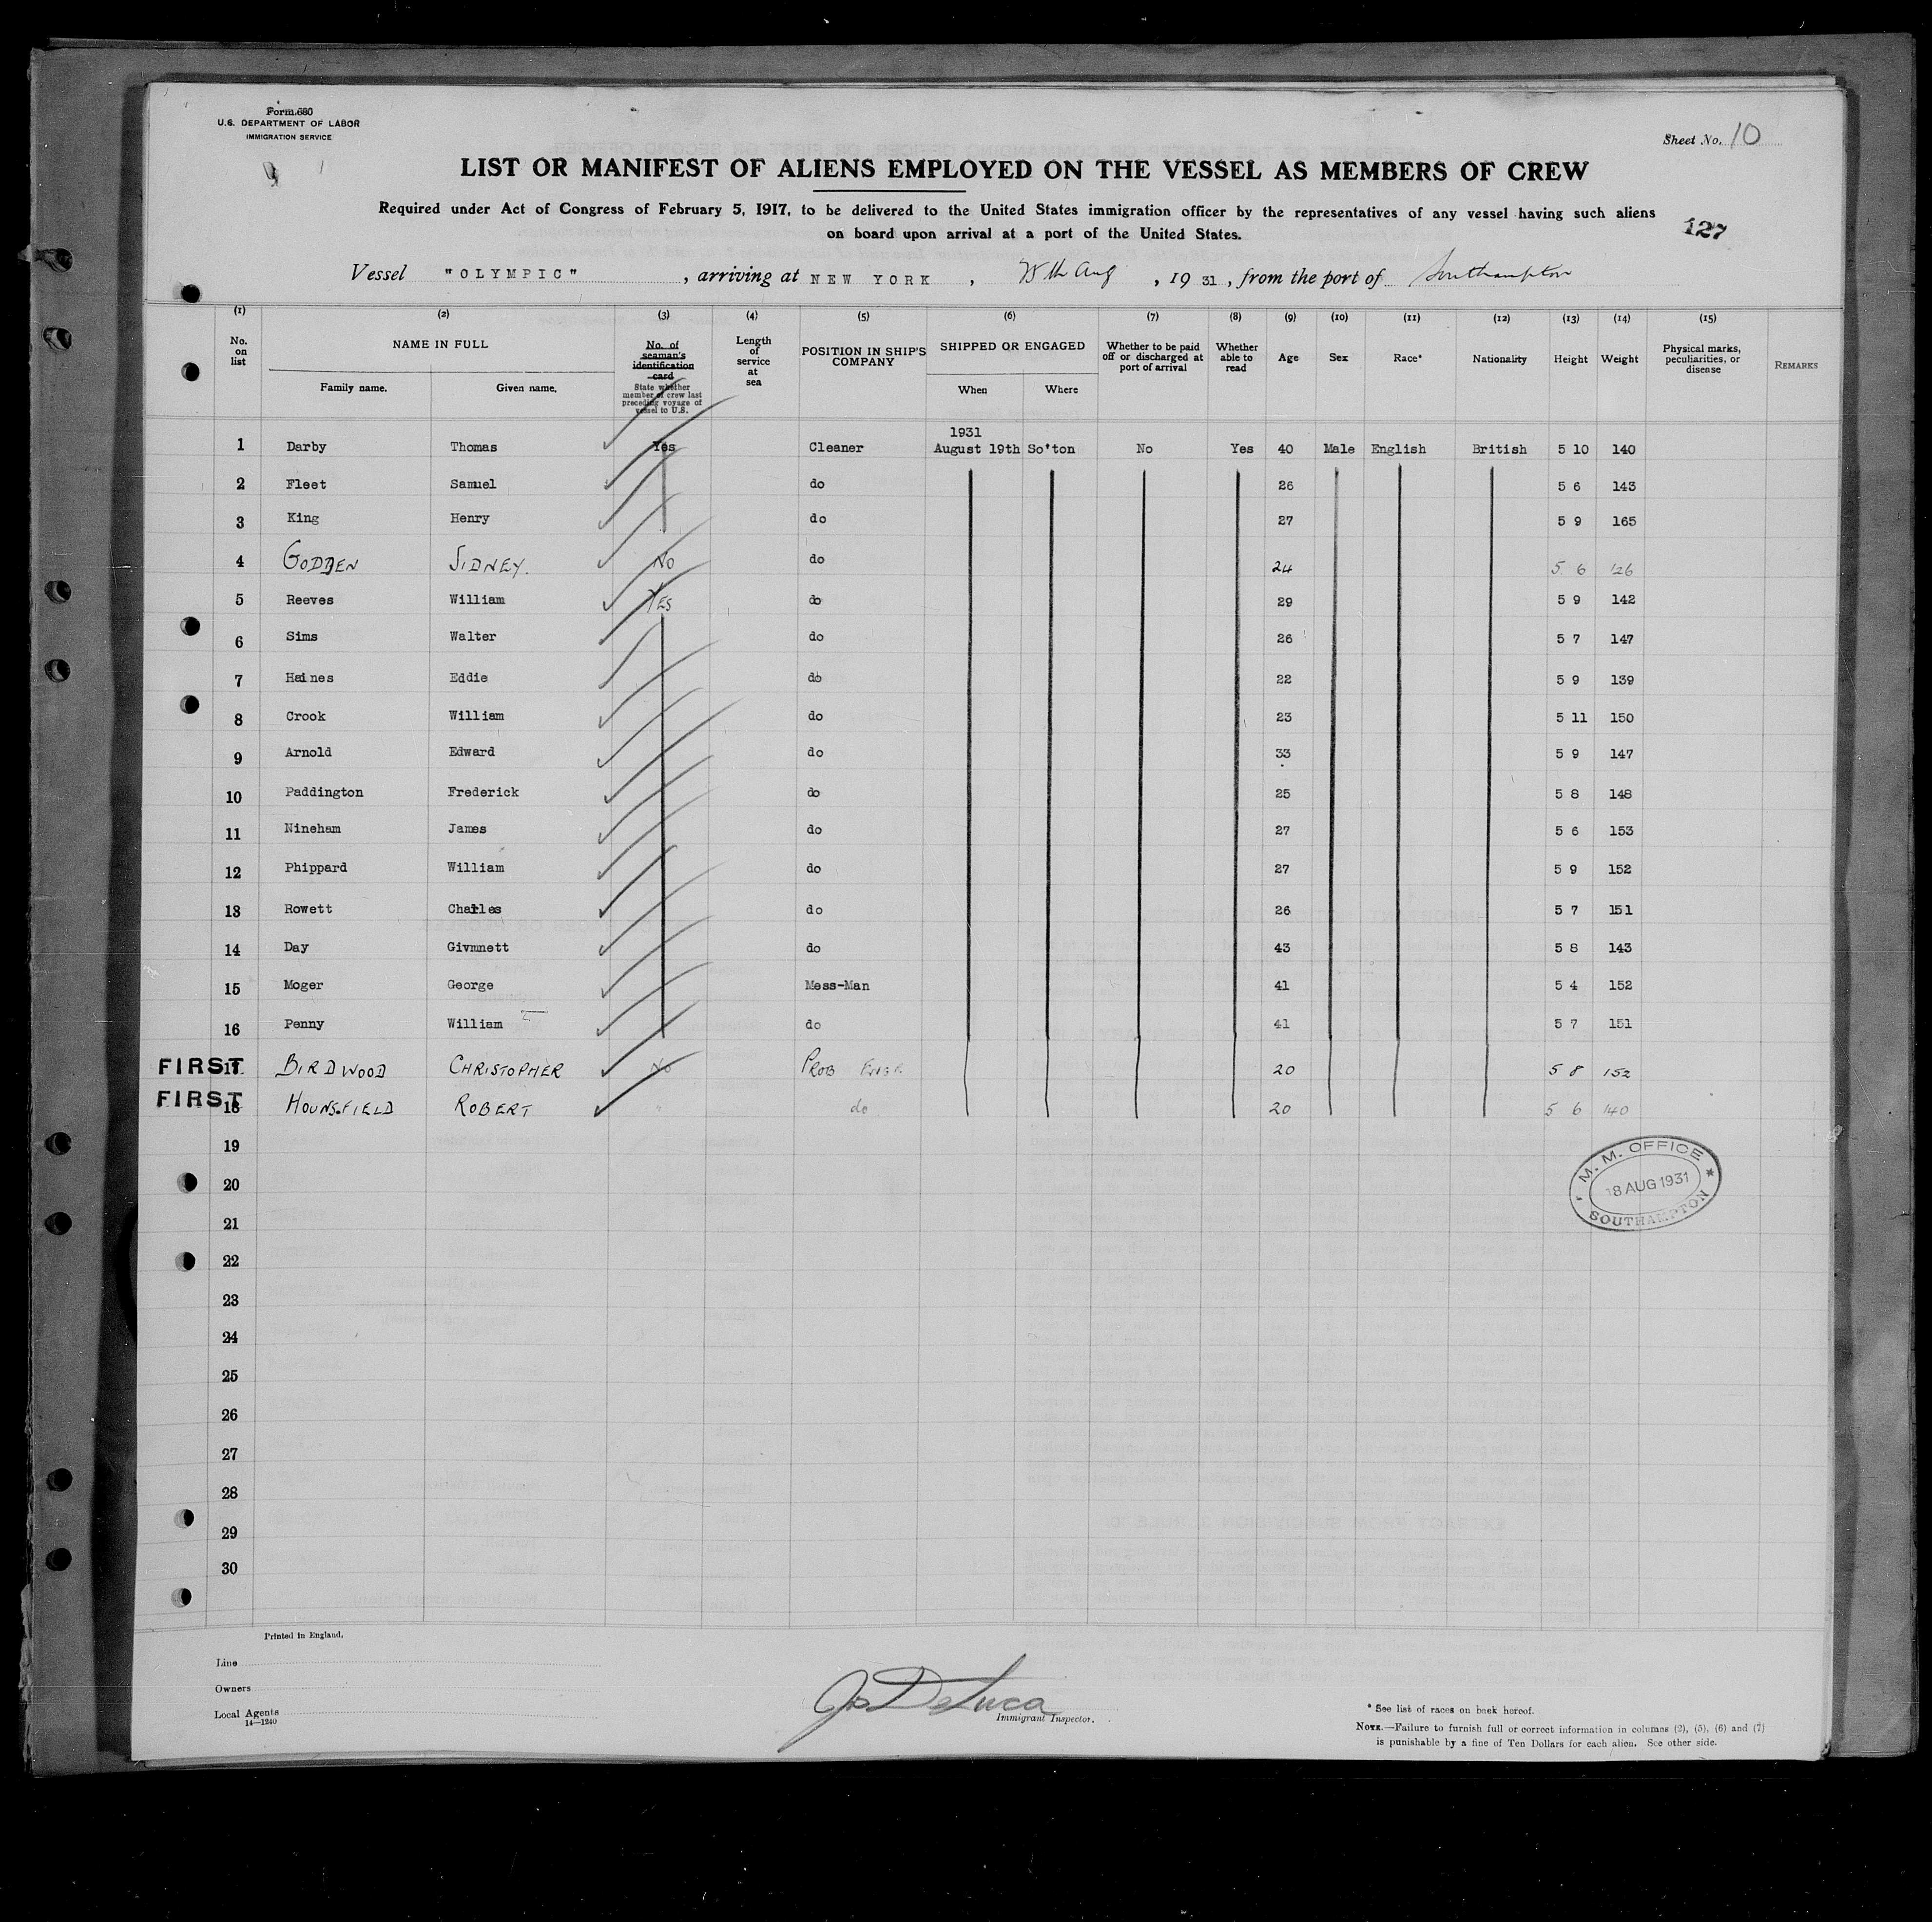 Form 680
U.S. DEPARTMENT OF LABOR
IMMIGRATION SERVICE
Sheet No. 10
LIST OR MANIFEST OF ALIENS EMPLOYED ON THE VESSEL AS MEMBERS OF CREW
Required under Act of Congress of February 5, 1917, to be delivered to the United States immigration officer by the representatives of any vessel having such aliens
on board upon arrival at a port of the United States.
127
Vessel "OLYMPIC", arriving at NEW YORK, 25th Aug, 1931, from the port of Southampton
(1) (2) (3) (4) (5) (6) (7) (8) (9) (10) (11) (12) (13) (14) (15)
No. on list
NAME IN FULL
Family name. Given name.
No. of seaman's identification card
State whether member of crew last preceding voyage of vessel to U.S.
Length of service at sea
POSITION IN SHIP'S COMPANY
SHIPPED OR ENGAGED
When Where
Whether to be paid off or discharged at port of arrival
Whether able to read
Age
Sex
Race*
Nationality
Height
Weight
Physical marks, peculiarities, or disease
REMARKS
1931
1 Darby Thomas Yes Cleaner August 19th So'ton No Yes 40 Male English British 5 10 140
2 Fleet Samuel do 26 5 6 143
3 King Henry do 27 5 9 165
4 GODDEN SIDNEY. NO do 24 5 6 126
5 Reeves William YES do 29 5 9 142
6 Sims Walter do 26 5 7 147
7 Haines Eddie do 22 5 9 139
8 Crook William do 23 5 11 150
9 Arnold Edward do 33 5 9 147
10 Paddington Frederick do 25 5 8 148
11 Nineham James do 27 5 6 153
12 Phippard William do 27 5 9 152
13 Rowett Charles do 26 5 7 151
14 Day Givmnett do 43 5 8 143
15 Moger George Mess-Man 41 5 4 152
16 Penny William do 41 5 7 151
FIRST 17 BIRDWOOD CHRISTOPHER NO PROB ENGR 20 5 8 152
FIRST 18 HOUNSFIELD ROBERT " do 20 5 6 140
19
20
21
22
23
24
25
26
27
28
29
30
M. M. OFFICE
18 AUG 1931
SOUTHAMPTON
Printed in England.
Line
Owners
Local Agents
14—1240
Jo DeLuca
Immigrant Inspector.
* See list of races on back hereof.
NOTE.—Failure to furnish full or correct information in columns (2), (5), (6) and (7)
is punishable by a fine of Ten Dollars for each alien. See other side.